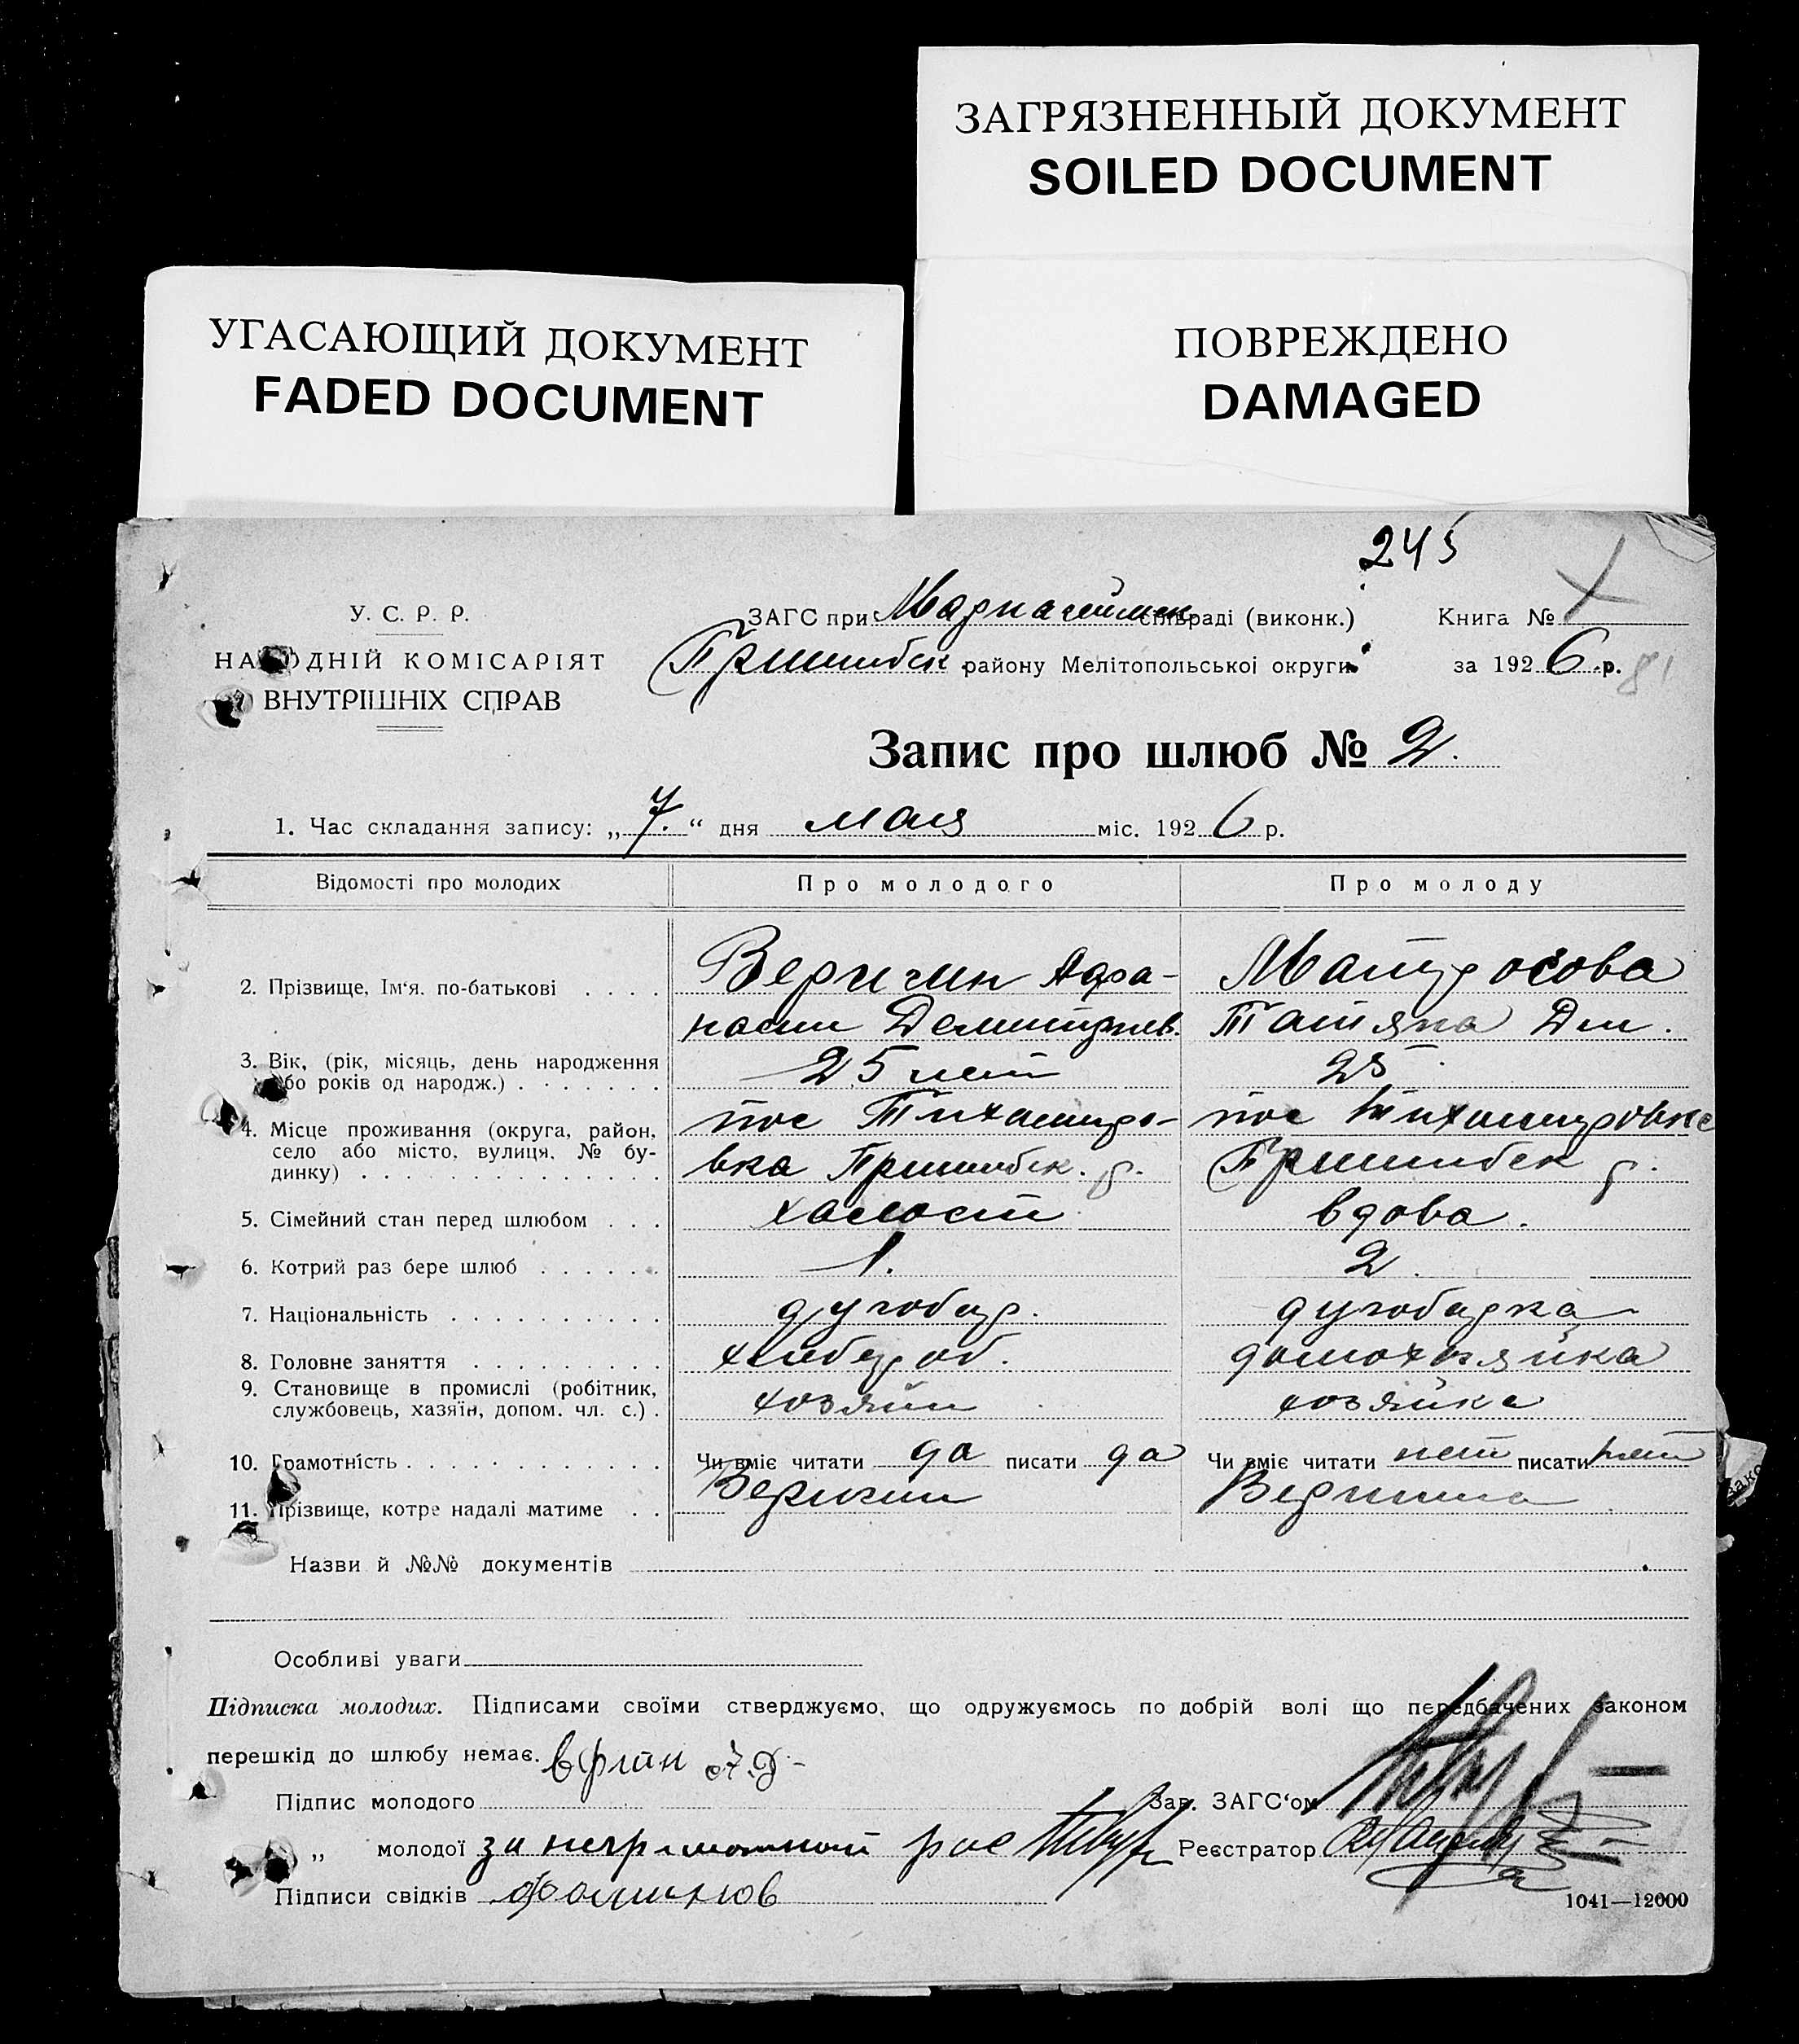 ЗАГРЯЗНЕННЫЙ ДОКУМЕНТ
SOILED DOCUMENT
УГАСАЮЩИЙ ДОКУМЕНТ
FADED DOCUMENT
ПОВРЕЖДЕНО
DAMAGED
245
У. С. Р. Р.
НАРОДНІЙ КОМІСАРІЯТ
ВНУТРІШНІХ СПРАВ
ЗАГС при сільраді (виконк.)
Пришибск району Мелітопольської округи
Книга №
за 1926 р. 81
Запис про шлюб № 2.
1. Час складання запису: „7.“ дня мая міс. 1926 р.
Відомості про молодих Про молодого Про молоду
2. Прізвище, Ім'я, по-батькові . . . . Веригин Афа- Матросова
насии Демитриев. Татяна Дм.
3. Вік, (рік, місяць, день народження
або років од народж.) . . . . . . . 25 лет 25
4. Місце проживання (округа, район,
село або місто, вулиця, № бу-
динку) . . . . . . . . . . . . . .
пос Тихамиро- пос Тихамировке
вка Пришибск. р. Пришибск р.
5. Сімейний стан перед шлюбом . . . халост вдова.
6. Котрий раз бере шлюб . . . . . . 1. 2.
7. Національність . . . . . . . . . . духобор. духоборка
8. Головне заняття . . . . . . . . . хлебороб. домохозяйка
9. Становище в промислі (робітник,
службовець, хазяїн, допом. чл. с.) . хозяин хозяйка
10. Грамотність . . . . . . . . . . . . Чи вміє читати да писати да Чи вміє читати нет писати нет
11. Прізвище, котре надалі матиме . . Веригин Веригина
Назви й №№ документів
Особливі уваги
Підписка молодих. Підписами своїми стверджуємо, що одружуємось по добрій волі що передбачених законом
перешкід до шлюбу немає.
Підпис молодого Зав. ЗАГС'ом
„ молодої за неграмотной рос Реєстратор
Підписи свідків
1041—12000